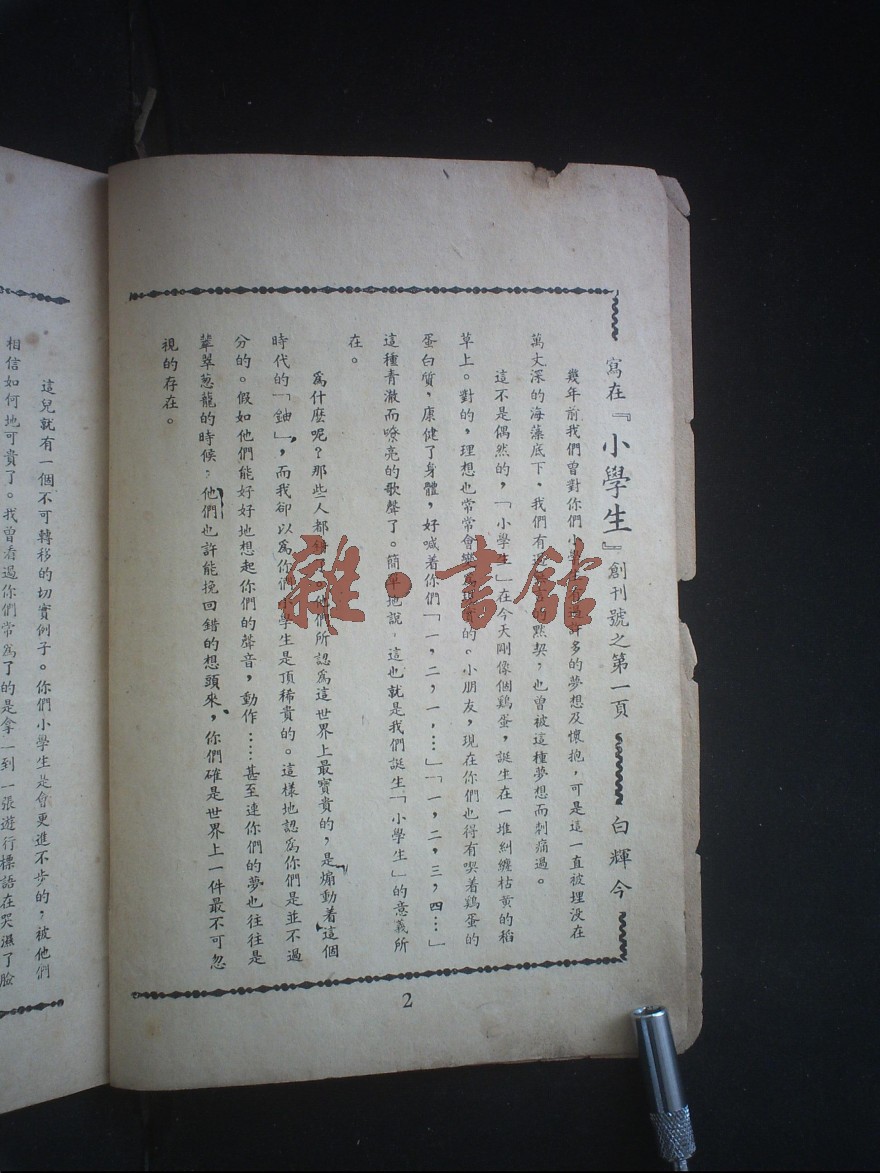 寫在『小學生』創刊號之第一頁 白輝今
幾年前我們曾對你們小學許多的夢想及懷抱，可是這一直被埋没在
萬丈深的海藻底下，我們有的默契；也曾被這種夢想而刺痛過。
這不是偶然的，「小學生」在今天剛像個鷄蛋，誕生在一堆糾纏枯黄的稻
草上。對的，理想也常常會變的。小朋友，現在你們也得有喫着鷄蛋的
蛋白質，康健了身體，好喊着你們「一，二，一，…」「一，二，三，四…」
這種青澈而嘹亮的歌聲了。簡單地說，這也就是我們誕生「小學生」的意義所
在。
爲什麽呢？那些人都他們所認爲這世界上最寶貴的，是煽動着這個
時代的「鈾」，而我卻以爲你們小學生是頂稀貴的。這樣地認爲你們是並不過
分的。假如他們能好好地想起你們的聲音，動作……甚至連你們的夢也往往是
輩翠葱龍的時候，他們也許能挽回錯的想頭來，你們確是世界上一件最不可忽
視的存在。
2
這兒就有一個不可轉移的切實例子。你們小學生是會更進不步的，被他們
相信如何地可貴了。我曾看過你們常爲了的是拿一到一張遊行標語在哭濕了臉
雜·書館